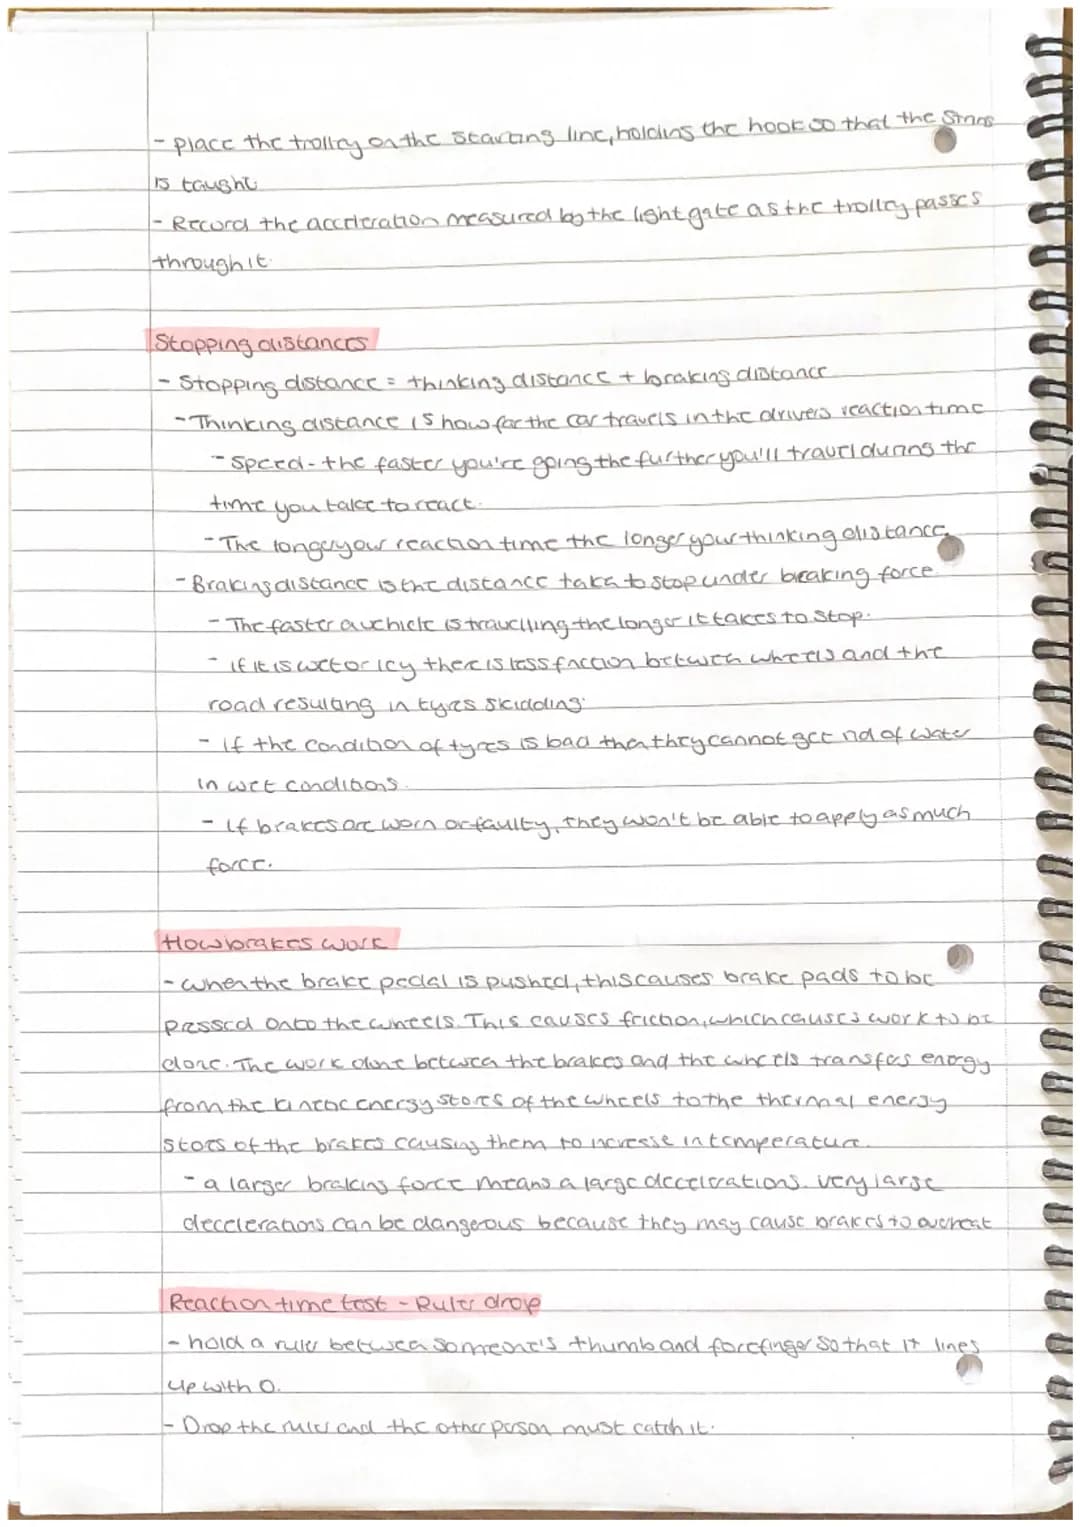 - place the trolley on the starting line, holding the hook so that the string
is taught
- Record the acceleration measured by the light gate as the trolley passes
through it.
Stopping distances
- Stopping distance = thinking distance + braking distance
- Thinking distance is how far the car travels in the drivers reaction time
- Speed - the faster you're going the further you'll travel during the
time you take to react.
- The longer your reaction time the longer your thinking distance.
- Braking distance is the distance taken to stop under breaking force
- The faster a vehicle is travelling the longer it takes to stop.
- if it is wet or icy there is less friction between wheels and the
road resulting in tyres skidding.
- If the condition of tyres is bad then they cannot get rid of water
in wet conditions.
- If brakes are worn or faulty, they won't be able to apply as much
force.
How brakes work
- when the brake pedal is pushed, this causes brake pads to be
pressed onto the wheels. This causes friction, which causes work to be
done. The work done between the brakes and the wheels transfers energy
from the kinetic energy stores of the wheels to the thermal energy
stores of the brakes causing them to increase in temperature.
- a larger braking force means a large decelerations. very large
decelerations can be dangerous because they may cause brakes to overheat
Reaction time test - Ruler drop
- hold a ruler between someone's thumb and forefinger so that it lines
up with 0.
- Drop the ruler and the other person must catch it.